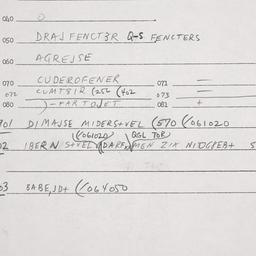 040 0
050 DRAJ FENCT3R Q-S FENCTERS
060 AGREJSE
070 CUDEROFENER 071 —
072 CUMTBIR (252 (402 073 —
080 )-FARTOJET 081 +
701 DIMAJSE MIDERSTVEL (570 (061020
(061020 QGL TOR
02 IBERN STVEL DARF MEN ZIK
03 BABE, JD+ (064050